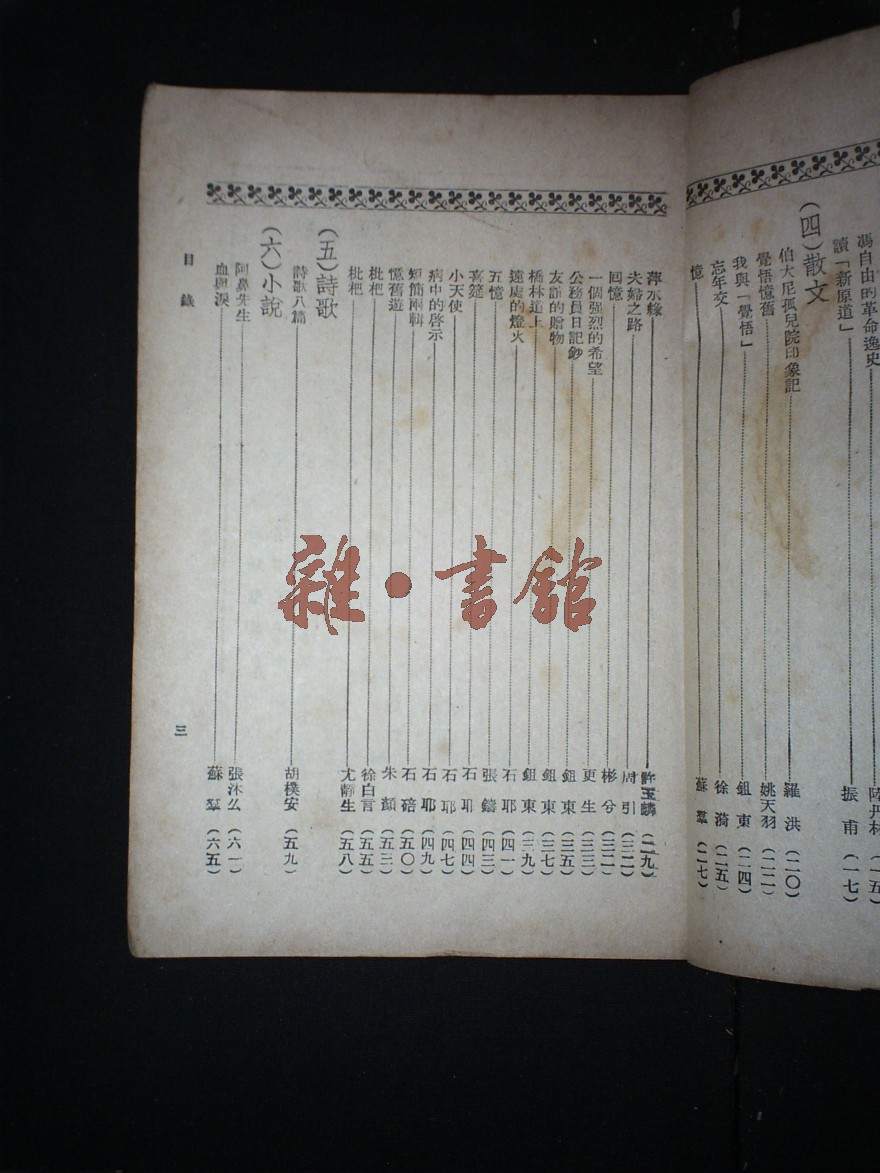 馮自由的革命逸史 陸丹林（一五）
讀「新原道」 振甫（一七）
（四）散文
伯大尼孤兒院印象記 羅洪（二〇）
覺悟憶舊 姚天羽（二二）
我與「覺悟」 鈕東（二四）
忘年交 徐漪（二五）
憶 蘇羣（二七）
萍水緣 許玉麟（二九）
夫婦之路 周引（三一）
回憶 彬兮（三二）
一個强烈的希望 更生（三三）
公務員日記鈔 鈕東（三五）
友誼的贈物 鈕東（三七）
橋林道上 鈕東（三九）
遠處的燈火 石耶（四一）
五憶 張鑄（四三）
喜筵 石耶（四四）
小天使 石耶（四七）
病中的啓示 石耶（四九）
短簡兩輯 石碚（五〇）
憶舊遊 朱顏（五三）
枇杷 徐白言（五五）
枇杷 尤靜生（五八）
（五）詩歌
詩歌八篇 胡樸安（五九）
（六）小說
阿鼻先生 張沐么（六一）
血與淚 蘇羣（六五）
目錄
三
雜·書館